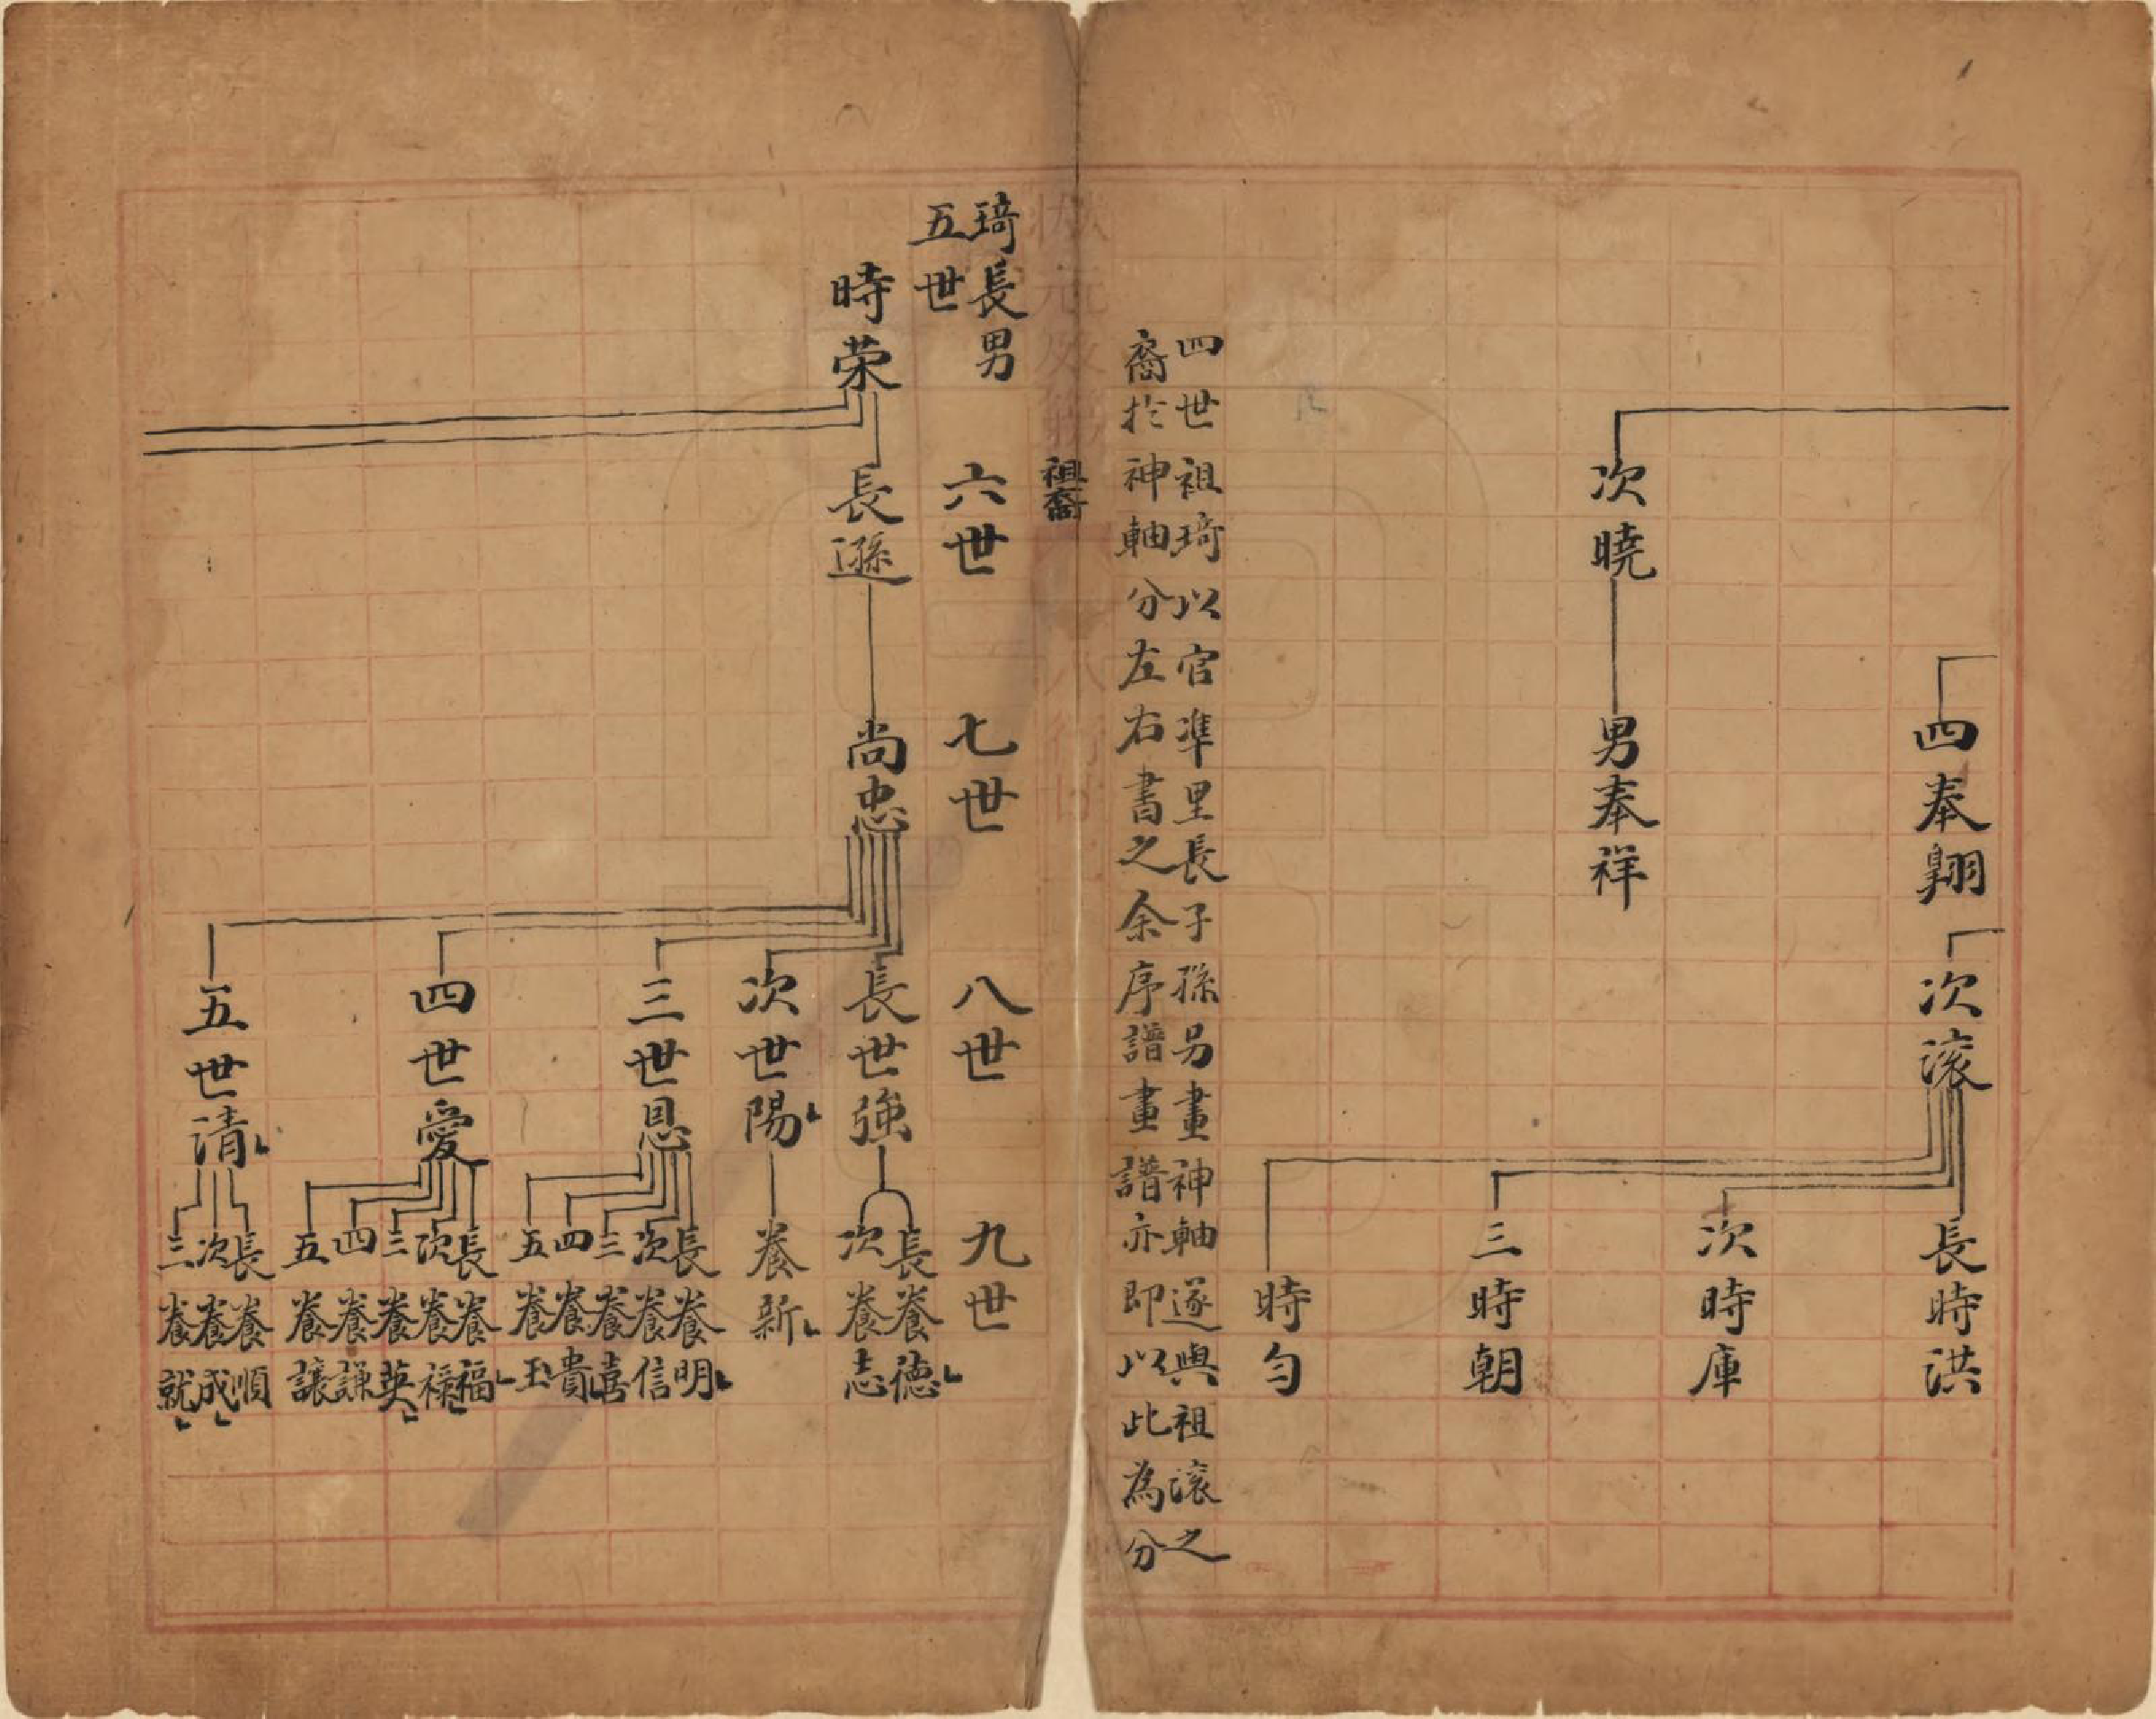 四奉翱
次滚
長時洪
次時庫
三時朝
時勻
次曉
男奉祥
四世祖琦以官準里長子孫另畫神軸遂與祖滚之
裔於神軸分左右書之余序譜畫譜亦即以此為分
祖裔
琦長男
五世
六世
七世
八世
九世
時荣
長遜
尚忠
長世強
次世陽
三世恩
四世愛
五世清
長養德
次養志
養新
長養明
次養信
三養喜
四養貴
五養玉
長養福
次養祿
三養英
四養謙
五養讓
長養順
次養成
三養就